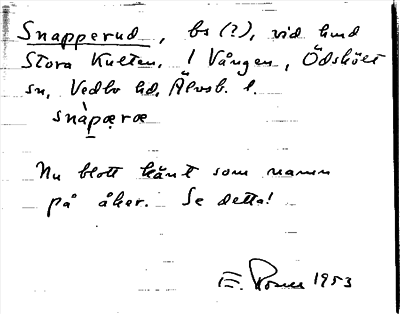 Snapperud, bs (?), vid
Stora Kulten, i Vången, Ödskölt
sn, Vedbo hd, Älvsb. l.
snàpæræ
Nu blott känt som namn
på åker. Se detta!
E. 1953